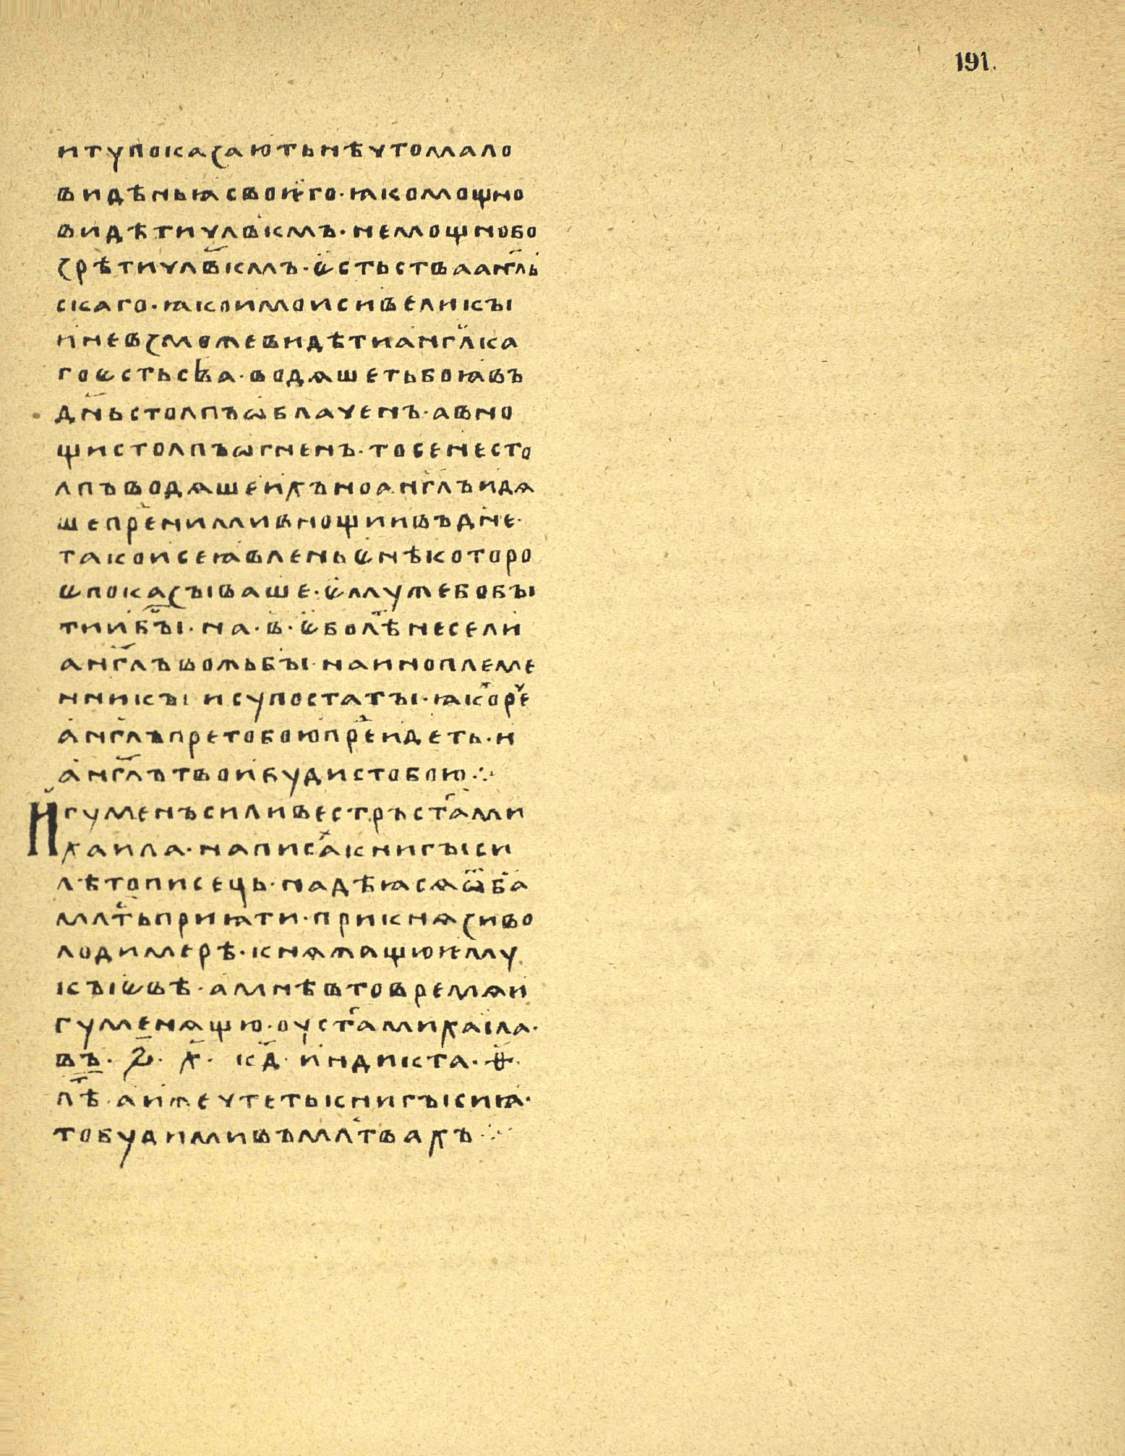 191.
итупокаꙁаютьнѣчтомало
видѣньꙗсвоѥго·ꙗкомощно
видѣтичлв҃кмъ·немощнобо
ꙁрѣтичлв҃кмъ·єстьстваанг҃ль
скаго·ꙗкоимоисивеликыі
иневꙁможевидѣтианг҃лка
гоєстьсва·водѧшетьбоꙗвъ
дн҃ьстолпъѡблаченъ·авно
щистолпъѡгненъ·тосенесто
лпъводѧшеихъноанг҃лъидѧ
шепреними вно щиивъдне·
такоисеꙗвленьєнѣкоторо
єпокаꙁыіваше·ємужебобыі
тиибы҃і·на·в·єболѣнесели
анг҃лъвожьбыі·наиноплеме
нникыі исупостатыі·ꙗкоре
анг҃лъпретобоюпреидеть·и
анг҃лътвоибудистобою⁘
Игуменъсиливестръст҃гоми
хаила·написакнигыіси
лѣтописець·надѣꙗсѧѿба҃
млтьприꙗти·прикнѧꙁиво
лодимерѣ·кнѧжащюѥму
кыієвѣ·амнѣвтовремѧи
гуменѧщю·оуст҃гомихаіла·
въ· ҂ꙅ· х· кд҃· индикта· ѳ·
лѣ· аижечтетькнигыісиꙗ·
тобудимивъмлт҃вахъ⁘